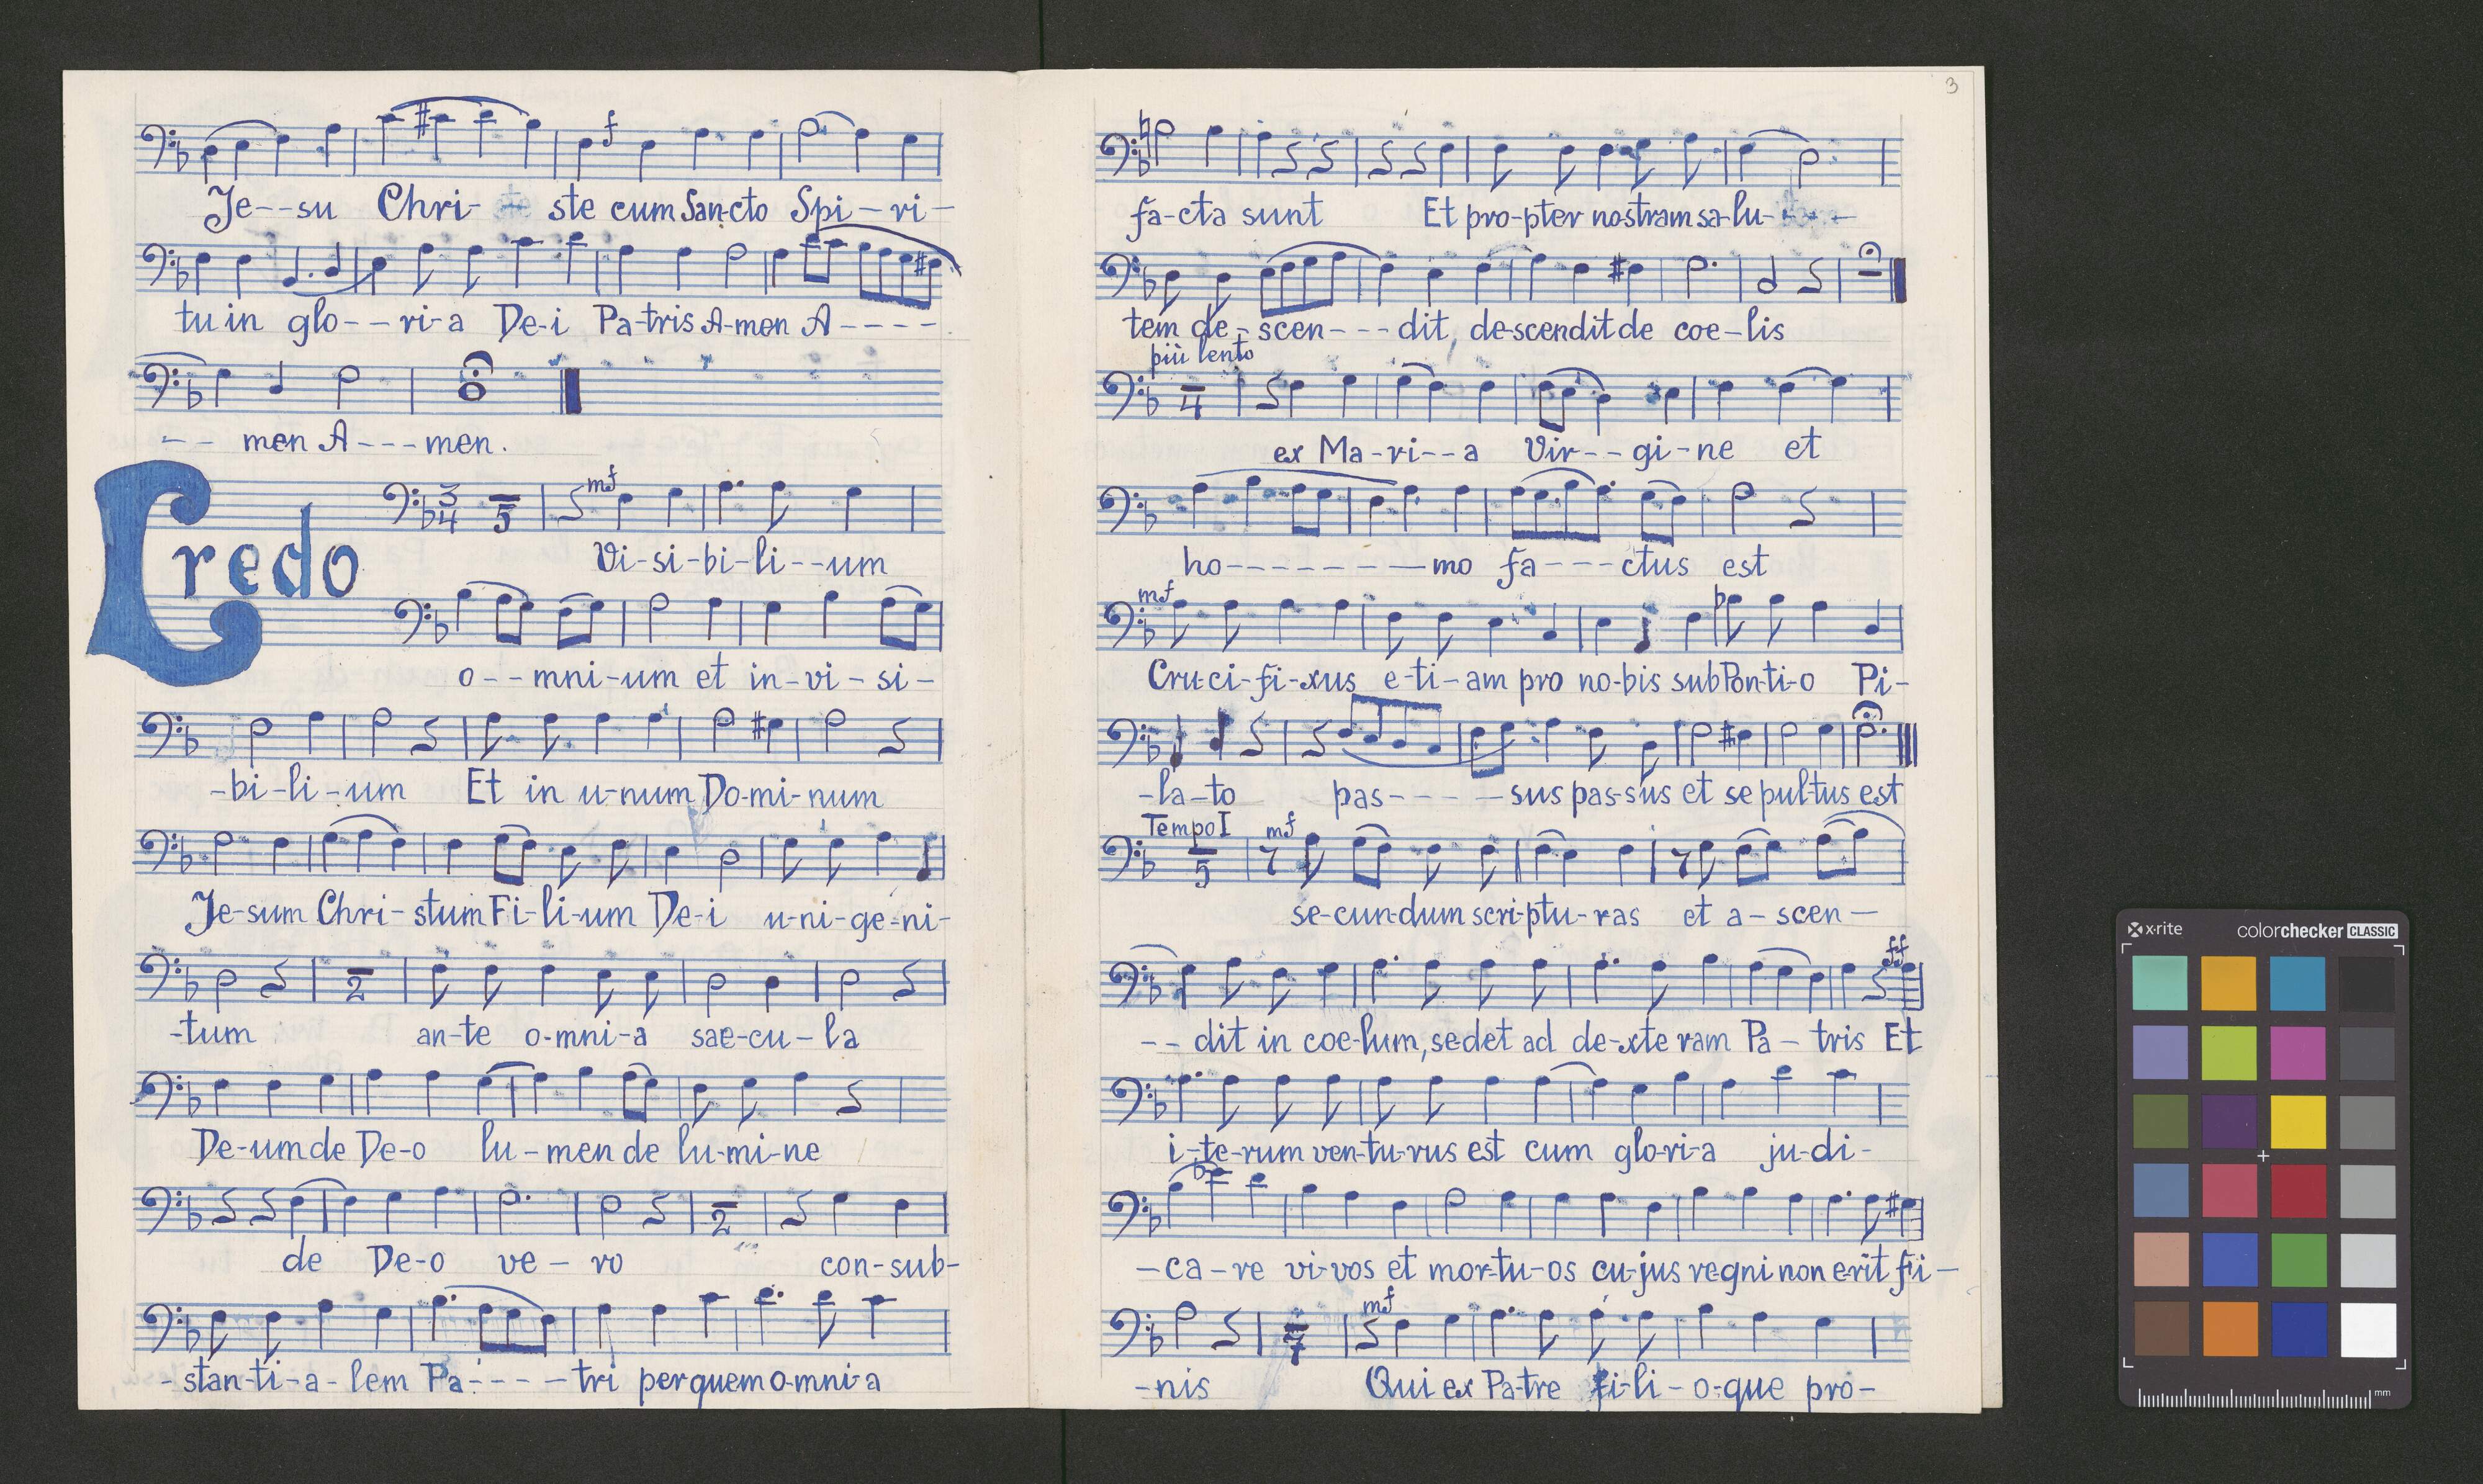 f
Je--su Chri- ste cum San-cto Spi-ri-
tu in glo--ri-a De-i Pa-tris A-men A----
-- men A---men.
Credo
3
4
5
mf
Vi-si-bi-li--um
o--mni-um et in-vi-si-
-bi-li-um Et in u-num Do-mi-num
Je-sum Chri-stum Fi-li-um De-i u-ni-ge-ni-
2
-tum an-te o-mni-a sae-cu-la
De-um de De-o lu-men de lu-mi-ne
2
de De-o ve-ro con-sub-
-stan-ti-a-lem Pa----tri per quem o-mni-a
3
fa-cta sunt Et pro-pter no-stram sa-lu----
tem de-scen---dit, de-scendit de coe-lis
più lento
4
ex Ma-ri--a Vir--gi-ne et
ho--------mo fa---ctus est
mf
Cru-ci-fi-xus e-ti-am pro no-bis sub Pon-ti-o Pi-
-la-to pas-----sus pas-sus et se pul-tus est
Tempo I
5
mf
se-cun-dum scri-ptu-ras et a-scen-
ff
-- dit in coe-lum, se-det ad de-xte ram Pa-tris Et
i-te-rum ven-tu-rus est cum glo-ri-a ju-di-
-ca-re vi-vos et mor-tu-os cu-jus re-gni non e-rit fi-
mf
-nis Qui ex Pa-tre Fi-li-o-que pro-
x·rite colorchecker CLASSIC
mm